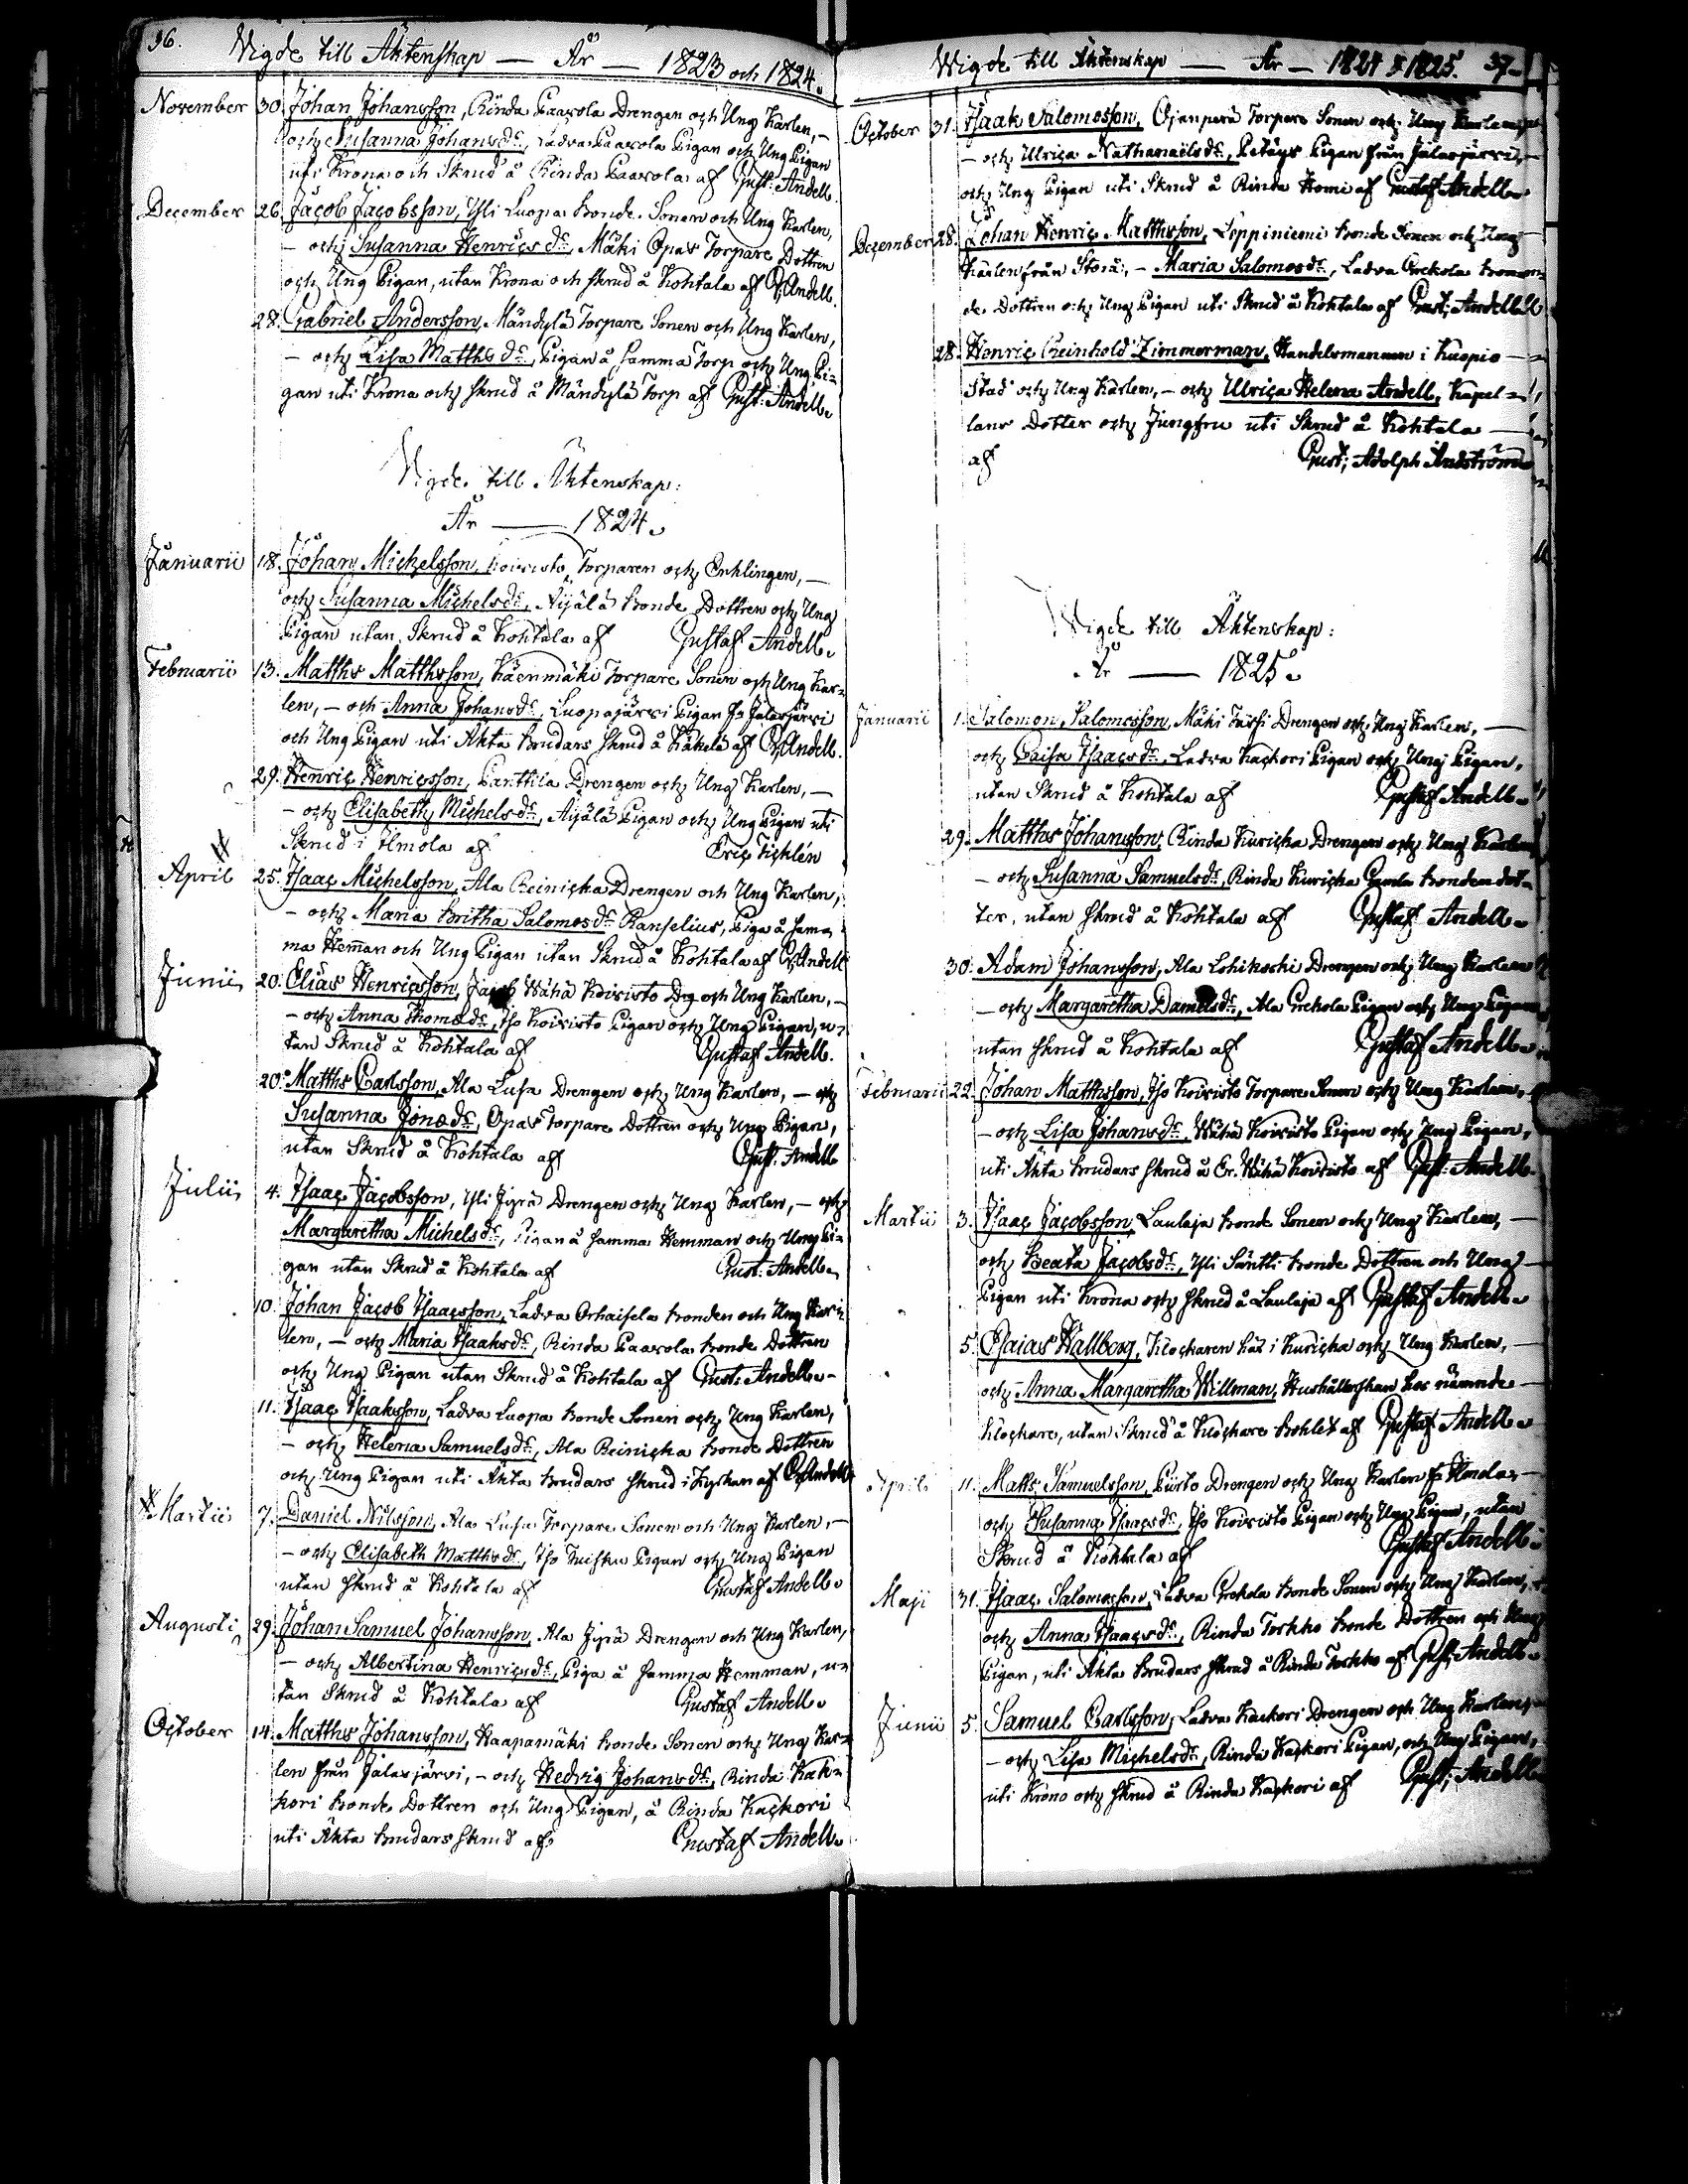 36.
Wigde till Äktenskap — År — 1823 och 1824.
November 30. Johan Johansson, Rinda Paavola Drengen och Ung Karlen, –
och Susanna Johansdr, Ladva Paavola Pigan och Ung Pigan
uti Krona och Skrud å Rinda Paavola af Gust: Andell.
December 26. Jacob Jacobsson, Yli Luopa Bonde Sonen och Ung Karlen,
– och Susanna Henricsdr, Mäki Opas Torpare Dottren
och Ung Pigan, utan Krona och skrud å Kohtala af G. Andell.
28. Gabriel Andersson, Mändylä Torpare Sonen och Ung Karlen,
– och Lisa Matthsdr, Pigan å samma Torp och Ung Pi=
gan uti Krona och skrud å Mändylä Torp af Gust: Andell.
Wigde till Äktenskap:
År — 1824.
Januarii 18. Johan Michelsson, Koivisto Torparen och Enklingen, –
och Susanna Michelsdr, Äijälä Bonde Dottren och Ung
Pigan utan Skrud å Kohtala af Gustaf Andell.
Februarii 13. Matths Matthsson, Käenmäki Torpare Sonen och Ung Kar=
len, – och Anna Johansdr, Luopajärvi Pigan fr Jalasjärvi
och Ung Pigan uti Äkta Brudars skrud å Käkelä af G. Andell.
29. Henric Henricsson, Panttila Drengen och Ung Karlen, –
– och Elisabeth Michelsdr, Äijälä Pigan och Ung Pigan uti
Skrud i Ilmola af Eric Ticklén
April 25. Isaac Michelsson, Ala Reinicka Drengen och Ung Karlen,
– och Maria Britha Salomosdr Ranselius, Piga å sam=
ma Heman och Ung Pigan utan Skrud å Kohtala af G. Andell
Junii 20. Elias Henricsson, Wähä Koivisto Drg och Ung Karlen, –
– och Anna Thomædr, Iso Koivisto Pigan och Ung Pigan, u=
tan Skrud å Kohtala af Gustaf Andell.
20. Matths Carlsson, Ala Lusa Drengen och Ung Karlen, – och
Susanna Jonædr, Opas Torpare Dottren och Ung Pigan,
utan Skrud å Kohtala af Gust: Andell
Julii 4. Isaac Jacobsson, Yli Jyrä Drengen och Ung Karlen, – och
Margaretha Michelsdr, Pigan å samma Hemman och Ung Pi=
gan utan Skrud å Kohtala af Gust: Andell.
10. Johan Jacob Isaacsson, Ladva Orhaisela Bonden och Ung Kar=
len, – och Maria Isaaksdr, Rinda Paavola Bonde Dottren
och Ung Pigan utan Skrud å Kohtala af Gust: Andell. –
11. Isaac Isaaksson, Ladva Luopa Bonde Sonen och Ung Karlen,
– och Helena Samuelsdr, Ala Reinicka Bonde Dottren
och Ung Pigan uti Äkta Brudars skrud i Kyrkan af G. Andell
Martii 7. Daniel Nilsson, Ala Lusa Torpare Sonen och Ung Karlen, –
– och Elisabeth Matthsdr, Iso Pigan och Ung Pigan
utan skrud å Kohtala af Gustaf Andell.
Augusti 29. Johan Samuel Johansson, Ala Jyrä Drengen och Ung Karlen,
– och Albertina Henricsdr, Piga å samma Hemman, u=
tan Skrud å Kohtala af Gustaf Andell.
October 14. Matths Johansson, Haapamäki Bonde Sonen och Ung Kar=
len från Jalasjärvi, – och Hedvig Johansdr, Rinda Kac=
kori Bonde Dottren och Ung Pigan, å Rinda Kackori
uti Äkta Brudars skrud af Gustaf Andell.
Wigde till Äktenskap — År — 1824 & 1825. 37.
October 31. Isaak Salomosson, Ojanperä Torpare Sonen och Ung Karlen,
– och Ulrica Nathanaelsdr, Petäys Pigan från Jalasjärvi, –
och Ung Pigan uti Skrud å Rinda Komi af Gustaf Andell.
December 28. Johan Henric Matthsson, Leppiniemi Bonde Sonen och Ung
Karlen från Storå, – Maria Salomosdr, Ladva Prekola Bonn
de Dottren och Ung Pigan uti Skrud å Kohtala af Gust: Andell
28. Henric Reinhold Zimmerman, Handelsmannen i Kuopio –
Stad och Ung Karlen, – och Ulrica Helena Andell, Kapel=
lans Dotter och Jungfru uti Skrud å Kohtala —
af Gust: Adolph Andström
Wigde till Äktenskap:
År — 1825.
Januarii 1. Salomon Salomosson, Mäki Jussi Drengen och Ung Karlen, –
och Caisa Isaacsdr, Ladva Kackori Pigan och Ung Pigan,
utan Skrud å Kohtala af Gustaf Andell.
29. Matths Johansson, Rinda Kuricka Drengen och Ung Karlen
– och Susanna Samuelsdr, Rinda Kuricka Gamla Bondens dot=
ter, utan skrud å Kohtala af Gustaf Andell.
30. Adam Johansson, Ala Lohikoski Drengen och Ung Karlen
– och Margaretha Danielsdr, Ala Prekola Pigan och Ung Pigan
utan skrud å Kohtala af Gustaf Andell.
Februarii 22. Johan Matthsson, Iso Koivisto Torpare Sonen och Ung Karlen,
– och Lisa Johansdr, Wähä Koivisto Pigan och Ung Pigan,
uti Äkta Brudars skrud å Cr. Wähä Koivisto af Gust: Andell.
Martii 3. Isaac Jacobsson, Laulaja Bonde Sonen och Ung Karlen, –
och Beata Jacobsdr, Yli Säntti Bonde Dottren och Ung –
Pigan uti Krona och skrud å Laulaja af Gustaf Andell.
5. Esaias Wallborg, Klockaren här i Kuricka och Ung Karlen, –
och Anna Margaretha Willman, Hushållerskan hos nämnde –
klockare, utan Skrud å Klockare Bohlet af Gustaf Andell.
April 11. Matts Samuelsson, Piirto Drengen och Ung Karlen fr Ilmola, –
och Susanna Isaacsdr, Iso Koivisto Pigan och Ung Pigan, utan
Skrud å Kohtala af Gustaf Andell.
Maji 31. Isaac Salomosson, Ladva Prekola Bonde Sonen och Ung Karlen,
och Anna Isaacsdr, Rinda Torkko Bonde Dottren och Ung
Pigan, uti Äkta Brudars skrud å Rinda Torkko af Gust: Andell.
Junii 5. Samuel Carlsson, Ladva Kackori Drengen och Ung Karlen,
– och Lisa Michelsdr, Rinda Kackori Pigan, och Ung Pigan,
uti Krono och skrud å Rinda Kackori af Gust: Andell